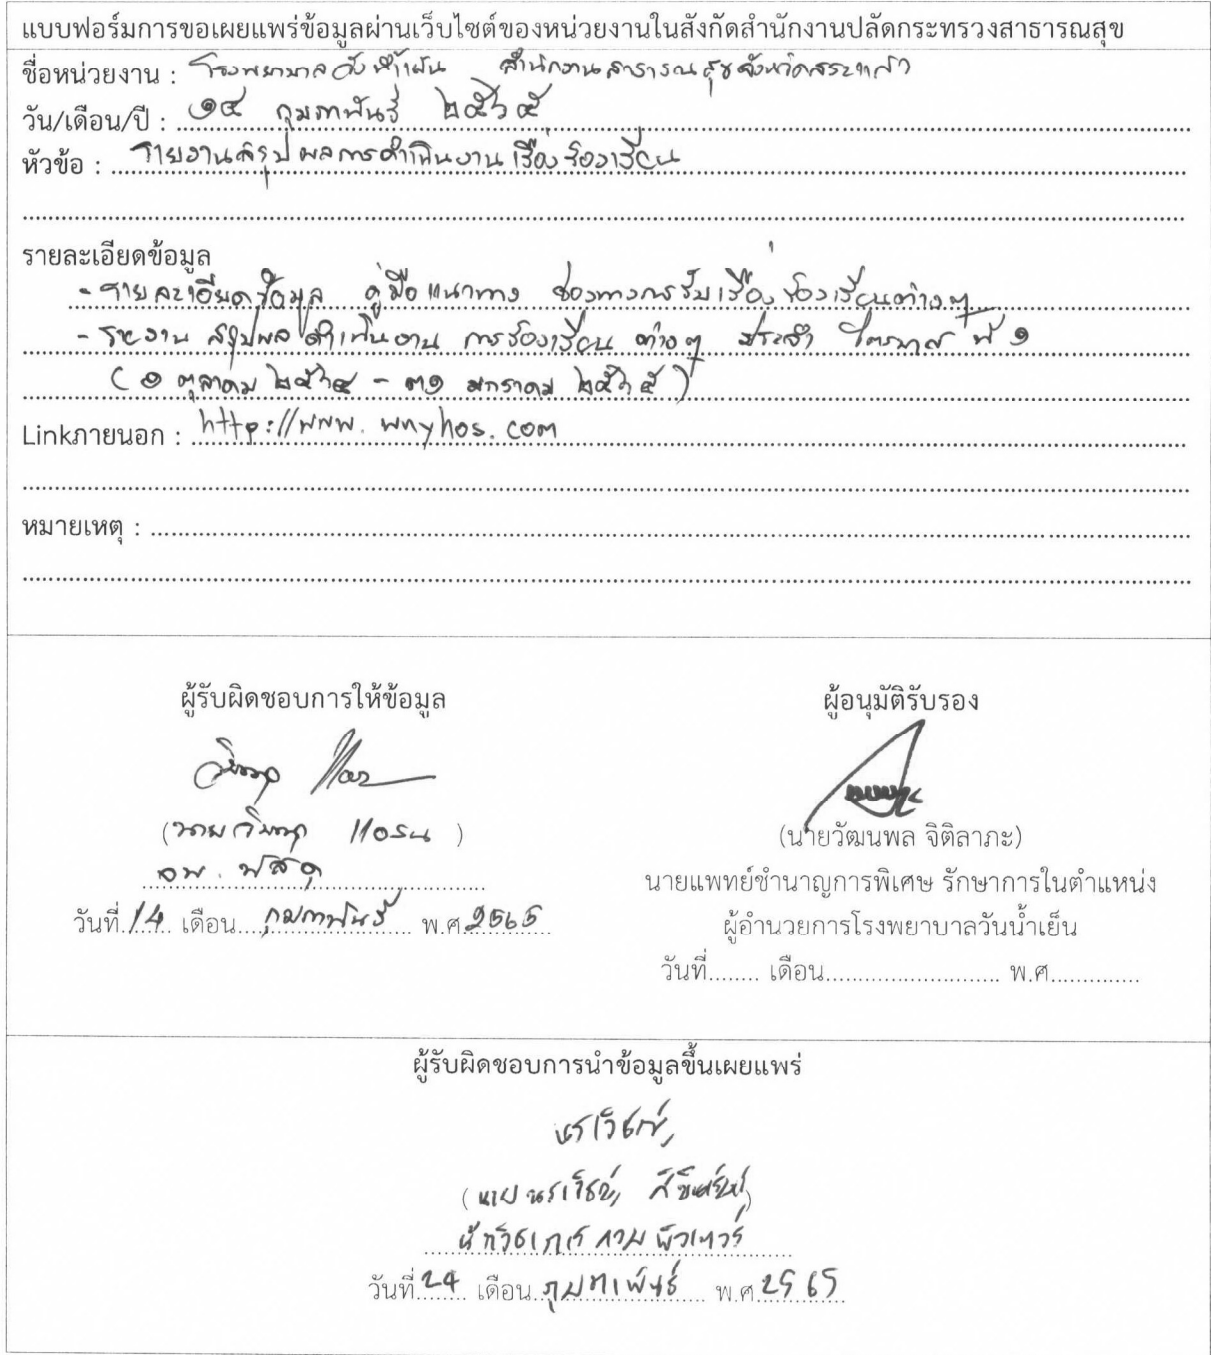 แบบฟอร์มการขอเผยแพร่ข้อมูลผ่านเว็บไซต์ของหน่วยงานในสังกัดสำนักงานปลัดกระทรวงสาธารณสุข
ชื่อหน่วยงาน : โรงพยาบาลวังน้ำเย็น สำนักงานสาธารณสุขจังหวัดสระแก้ว
วัน/เดือน/ปี : ๑๔ กุมภาพันธ์ ๒๕๖๕
หัวข้อ : รายงานสรุปผลการดำเนินงานเรื่องร้องเรียน
รายละเอียดข้อมูล
- รายละเอียดข้อมูล คู่มือแนวทาง ช่องทางการรับเรื่องร้องเรียนต่างๆ
- รายงาน สรุปผลดำเนินงาน การร้องเรียน ต่างๆ ประจำ ไตรมาส ที่ ๑
(๑ ตุลาคม ๒๕๖๔ - ๓๑ มกราคม ๒๕๖๕)
Linkภายนอก : http://www.wnyhos.com
หมายเหตุ :
ผู้รับผิดชอบการให้ข้อมูล
(นาย
จพ. พัสดุ
วันที่ 14 เดือน กุมภาพันธ์ พ.ศ 2565
ผู้อนุมัติรับรอง
(นายวัฒนพล จิติลาภะ)
นายแพทย์ชำนาญการพิเศษ รักษาการในตำแหน่ง
ผู้อำนวยการโรงพยาบาลวันน้ำเย็น
วันที่........ เดือน.......................... พ.ศ..............
ผู้รับผิดชอบการนำข้อมูลขึ้นเผยแพร่
(นาย
นักวิชาการคอมพิวเตอร์
วันที่ 24 เดือน กุมภาพันธ์ พ.ศ 2565